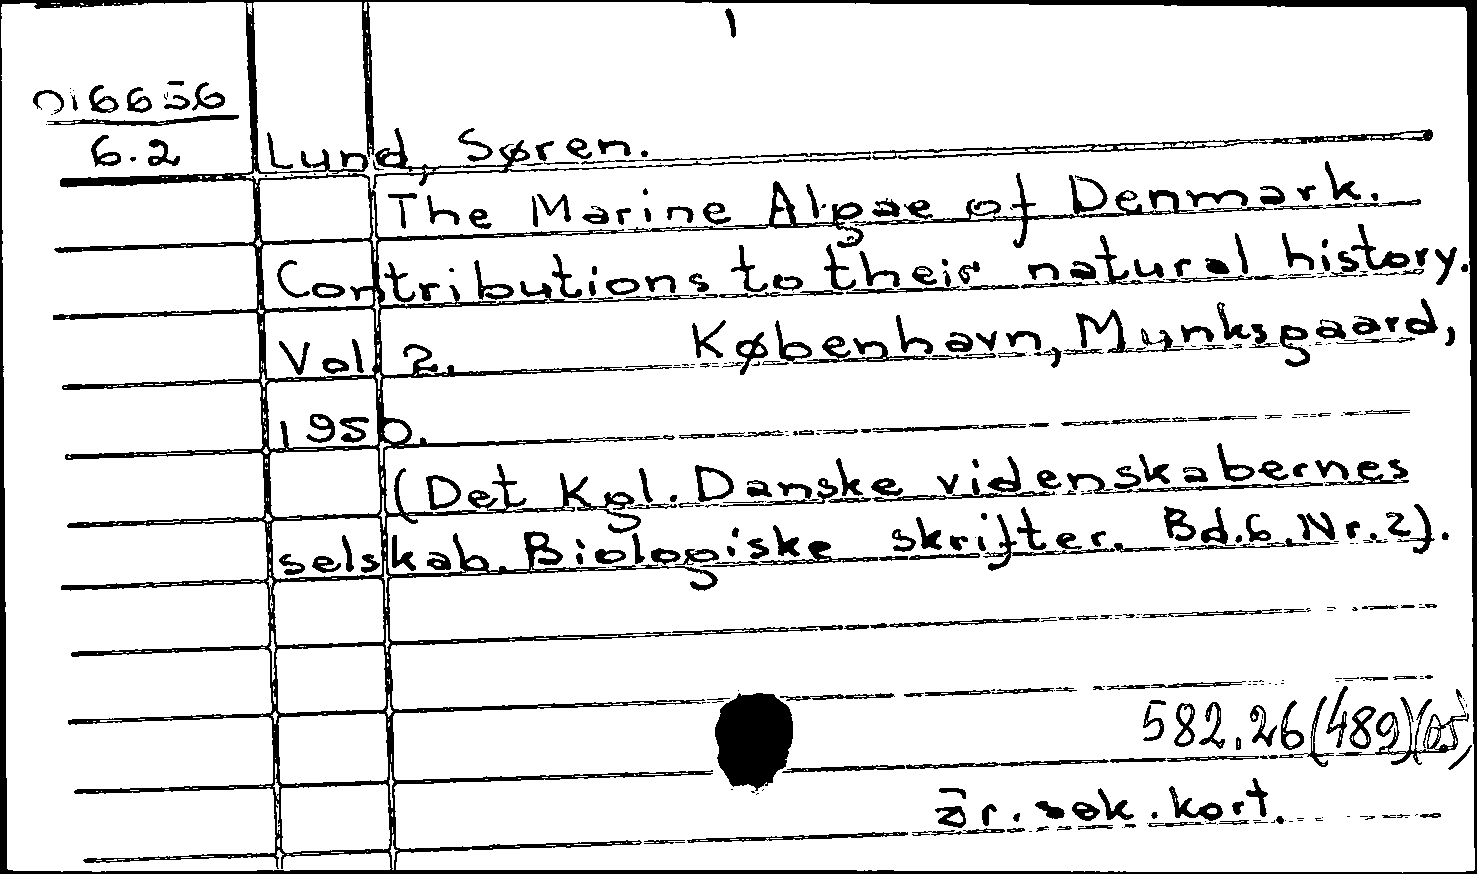 1
016656
6.2
Lund, Søren.
The Marine Algae of Denmark.
Contributions to their natural history.
Vol. 2. København, Munksgaard,
1950.
(Det Kgl. Danske videnskabernes
selskab. Biologiske skrifter. Bd.6. Nr.2).
582.26(489)(05)
är. søk. kort.